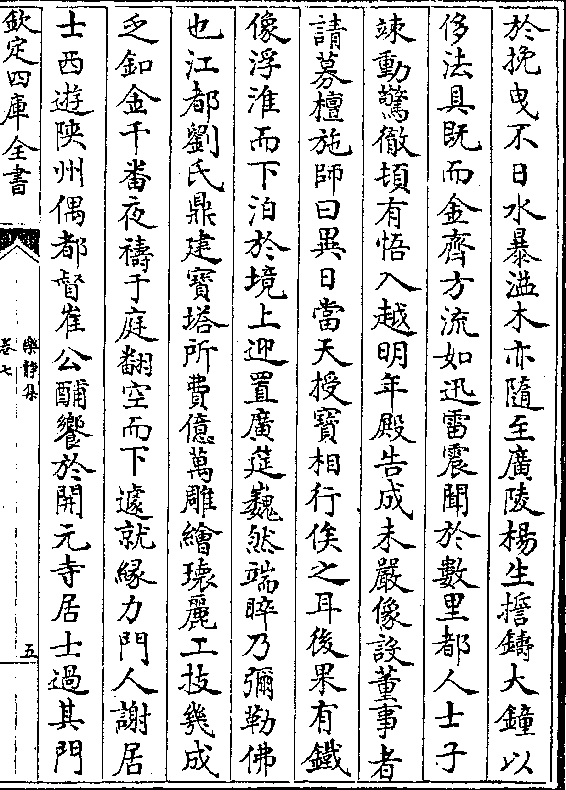 於挽曳不日水暴溢木亦隨至廣陵楊生捨鑄大鐘以
侈法具既而金齊方流如迅雷震聞於數里都人士子
竦動驚徹頓有悟入越明年殿告成未嚴像設董事者
請募檀施師曰異日當天授寶相行俟之耳後果有鐵
像浮淮而下泊於境上迎置廣筵巍然端睟乃彌勒佛
也江都劉氏鼎建寶塔所費億萬雕繪瓌麗工技幾成
乏釦金千番夜禱于庭翻空而下遽就緣力門人謝居
士西遊陝州偶都督崔公酺饗於開元寺居士過其門
欽定四庫全書
樂靜集
卷七
五